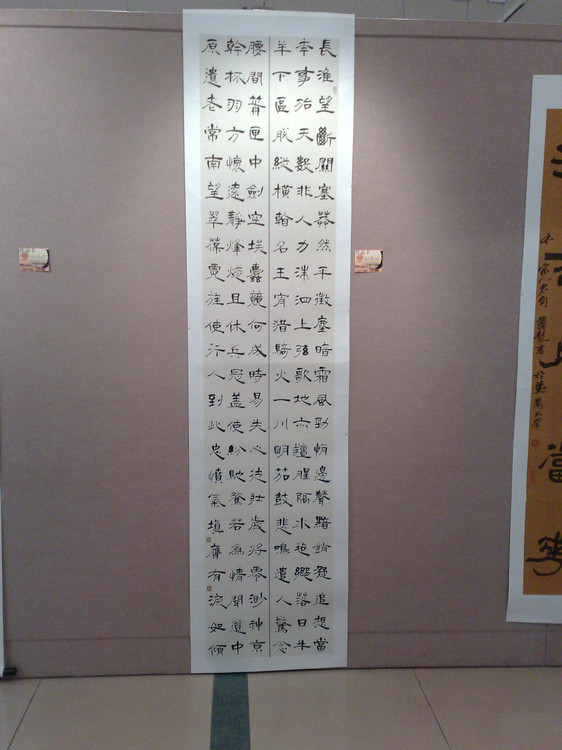 長淮望斷關塞莽然平徵塵暗霜風勁悄邊聲黯銷凝追想當
年事殆天數非人力洙泗上弦歌地亦羶腥隔水氈鄉落日牛
羊下區脫縱橫翰名王宵猎騎火一川明笳鼓悲鳴遣人驚念
腰間箭匣中劍空埃蠹競何成時易失心徒壯歲將零渺神京
幹杯羽方懷遠靜烽燧且休兵冠蓋使紛馳騖若為情聞道中
原遺老常南望翠葆霓旌使行人到此忠憤氣填膺有淚如傾